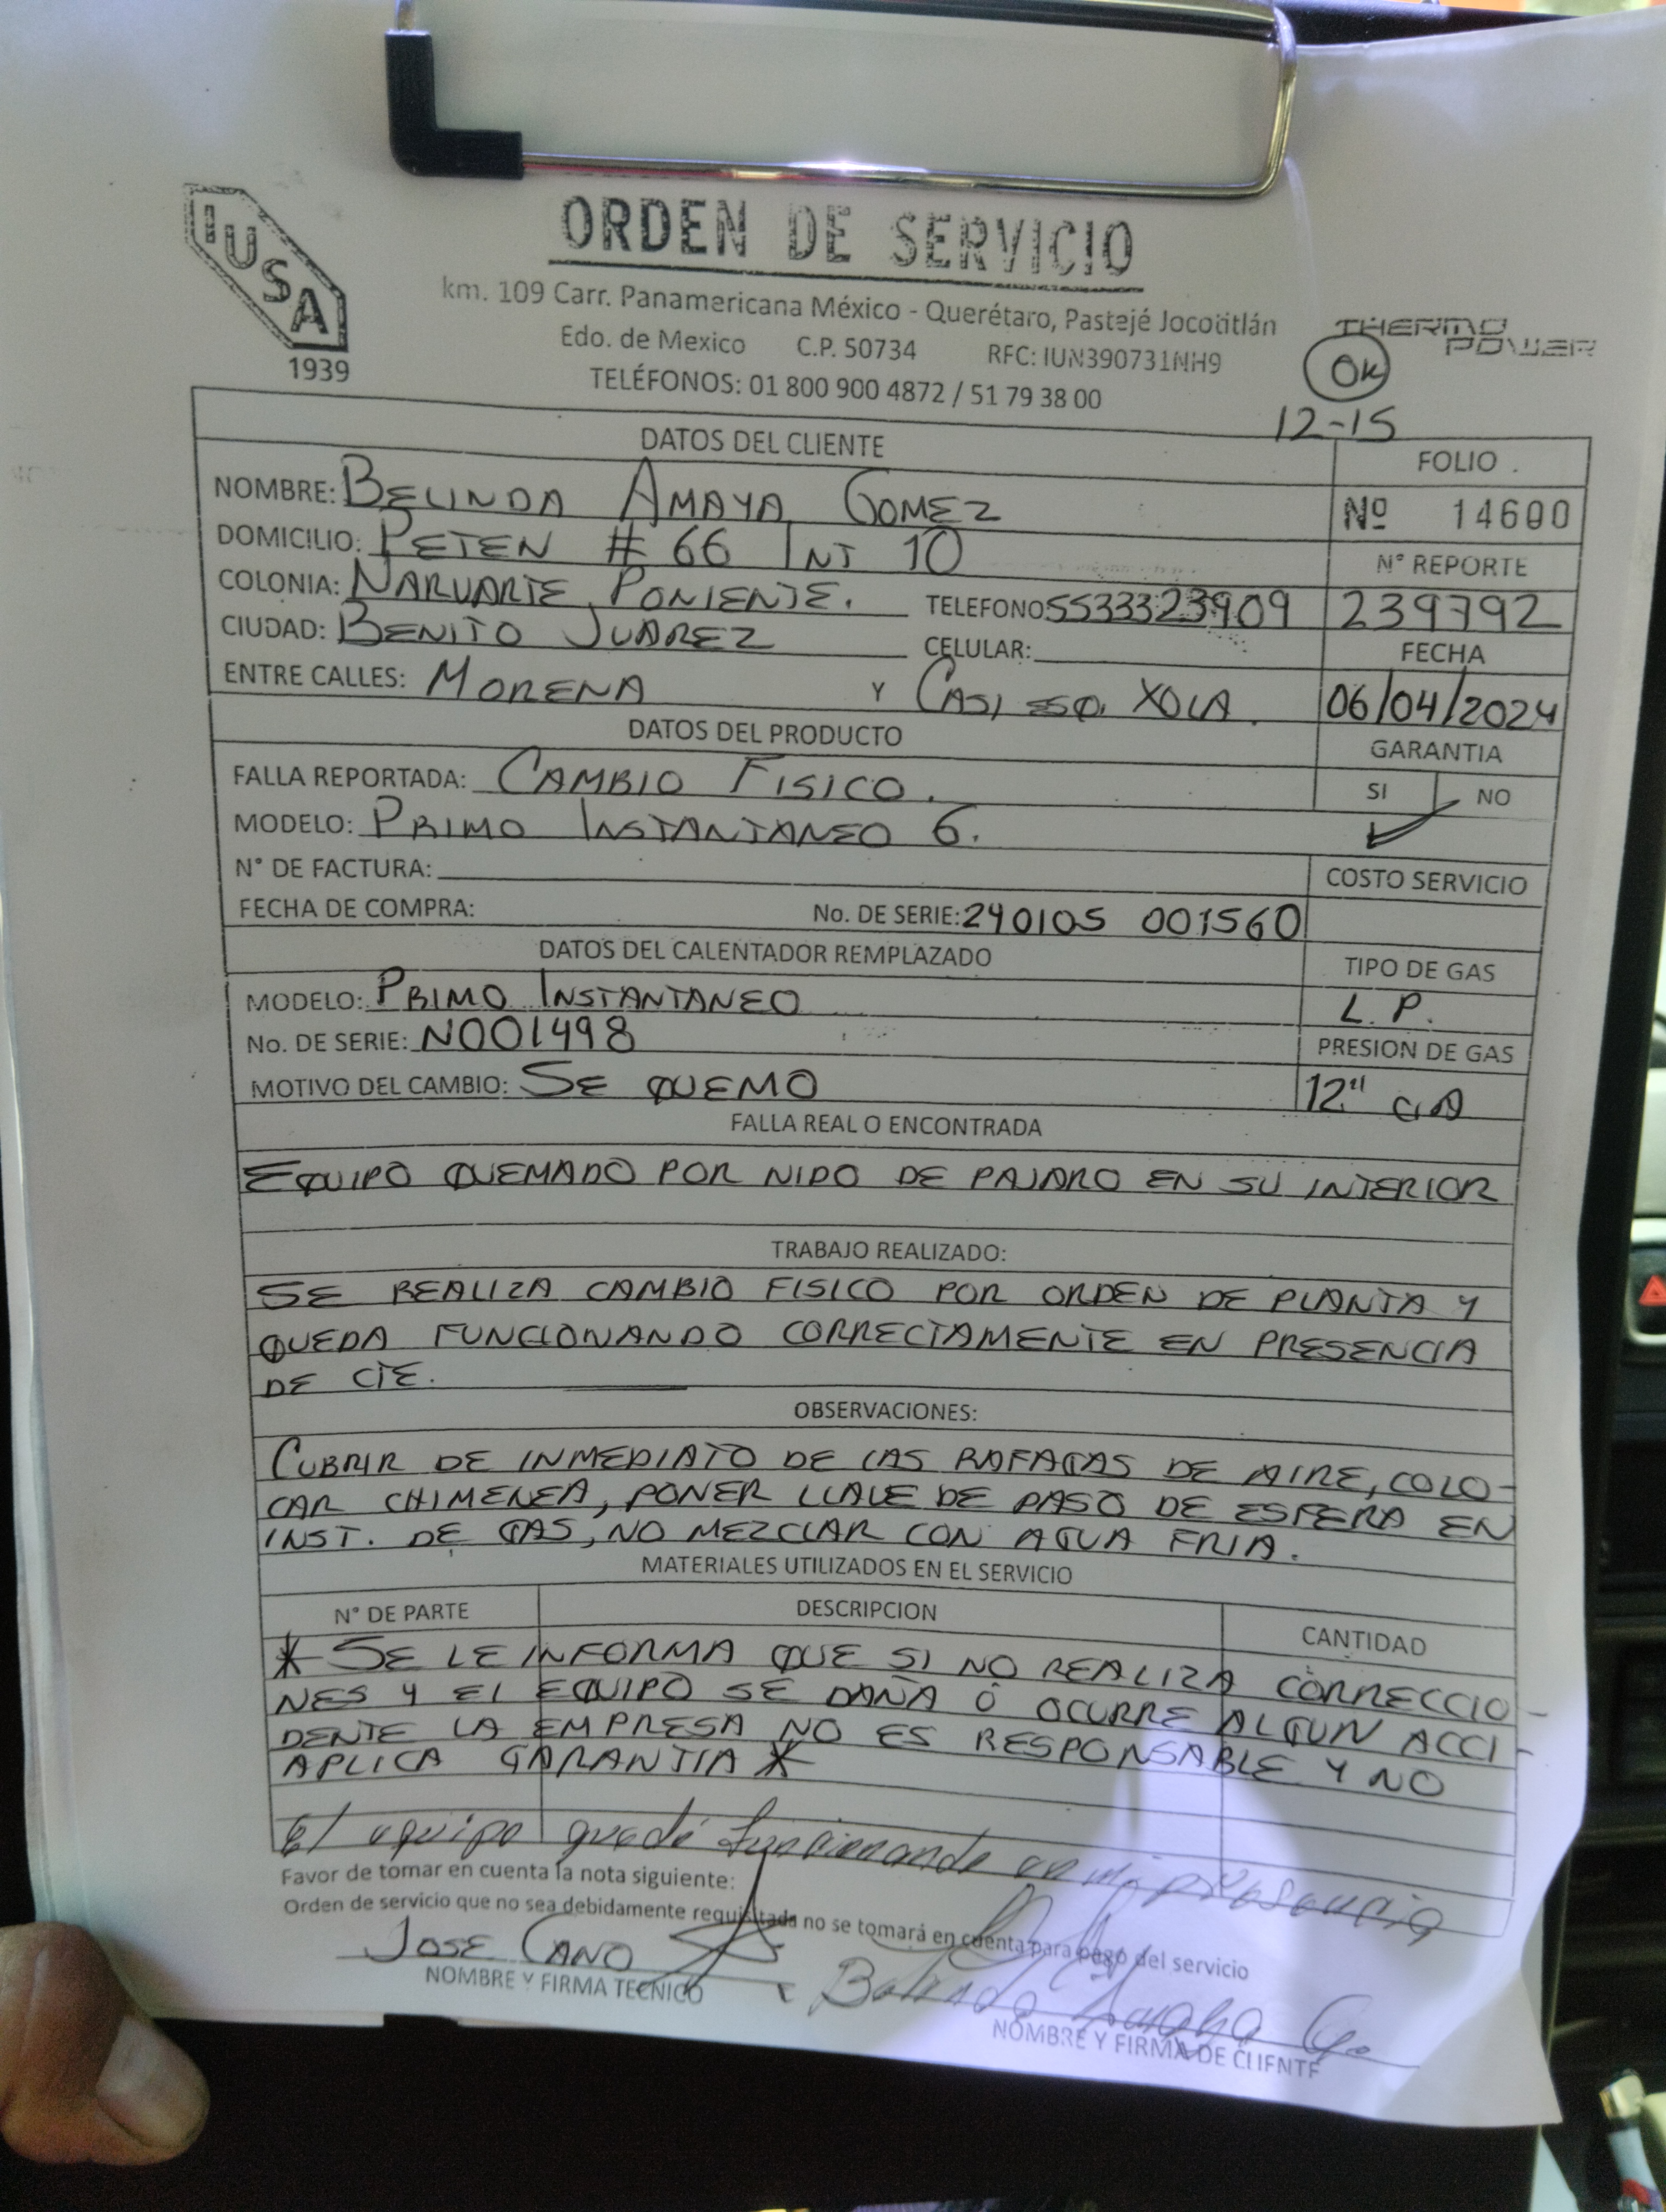 IUSA
1939
ORDEN DE SERVICIO
km. 109 Carr. Panamericana México - Querétaro, Pastejé Jocotitlán
Edo. de Mexico C.P. 50734 RFC: IUN390731NH9
TELÉFONOS: 01 800 900 4872 / 51 79 38 00
THERMO
POWER
OK
12-15
DATOS DEL CLIENTE
FOLIO .
NOMBRE: BELINDA AMAYA GOMEZ
Nº 14600
DOMICILIO: PETEN # 66 INT 10
N° REPORTE
COLONIA: NARVARTE PONIENTE. TELEFONO 5533323909
239792
CIUDAD: BENITO JUAREZ CELULAR:
FECHA
ENTRE CALLES: MORENA Y CASI ESQ. XOLA.
06/04/2024
DATOS DEL PRODUCTO
GARANTIA
FALLA REPORTADA: CAMBIO FISICO.
SI NO
MODELO: PRIMO INSTANTANEO 6.
N° DE FACTURA:
COSTO SERVICIO
FECHA DE COMPRA: No. DE SERIE: 240105 001560
DATOS DEL CALENTADOR REMPLAZADO
TIPO DE GAS
MODELO: PRIMO INSTANTANEO
L.P.
No. DE SERIE: N001498
PRESION DE GAS
MOTIVO DEL CAMBIO: SE QUEMO
12"
FALLA REAL O ENCONTRADA
EQUIPO QUEMADO POR NIDO DE PAJARO EN SU INTERIOR
TRABAJO REALIZADO:
SE REALIZA CAMBIO FISICO POR ORDEN DE PLANTA Y
QUEDA FUNCIONANDO CORRECTAMENTE EN PRESENCIA
DE CTE.
OBSERVACIONES:
CUBRIR DE INMEDIATO DE LAS RAFAGAS DE AIRE, COLO-
CAR CHIMENEA, PONER LLAVE DE PASO DE ESFERA EN
INST. DE GAS, NO MEZCLAR CON AGUA FRIA.
MATERIALES UTILIZADOS EN EL SERVICIO
N° DE PARTE DESCRIPCION CANTIDAD
* SE LE INFORMA QUE SI NO REALIZA CORRECCIO-
NES Y EL EQUIPO SE DAÑA O OCURRE ALGUN ACCI-
DENTE LA EMPRESA NO ES RESPONSABLE Y NO
APLICA GARANTIA *
El equipo quedó funcionando en mi presencia
Favor de tomar en cuenta la nota siguiente:
Orden de servicio que no sea debidamente requisitada no se tomará en cuenta para pago del servicio
JOSE CANO
Belinda Amaya G.
NOMBRE Y FIRMA TECNICO
NOMBRE Y FIRMA DE CLIENTE